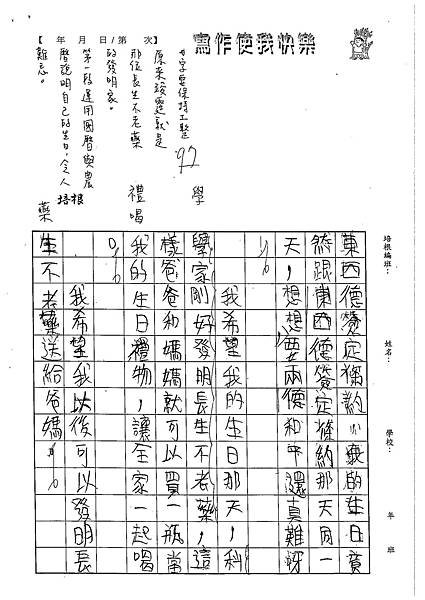 寫作使我快樂
【　年　月　日/第　次】
*字要保持工整
原來　靈就是
那位長生不老藥
的發明家。
第一段運用國曆與農
曆說明自己的生日，令人
難忘。
92
培根
學
禮喝
藥
培根編班：
姓名：
學校：
年　班
東西德簽定條約，我的生日竟
然跟東西德簽定條約那天同一
天，想想要兩德和平還真難呀
！
我希望我的生日那天，科
學家剛好發明長生不老藥，這
樣爸爸和媽媽就可以買一瓶當
我的生日禮物，讓全家一起喝
。
我希望我以後可以發明長
生不老藥送給爸媽。